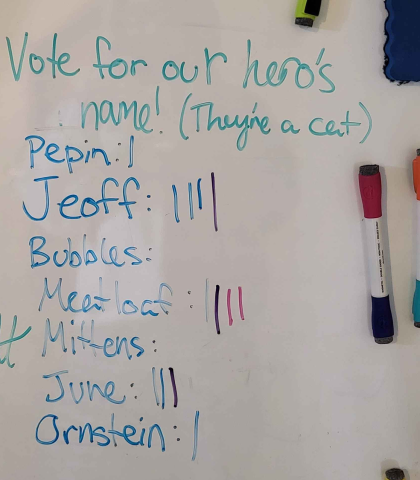 Vote for our hero's
name! (They're a cat)
Pepin: |
Jeoff: ||||
Bubbles:
Meatloaf: |||||
Mittens:
June: |||
Ornstein: |